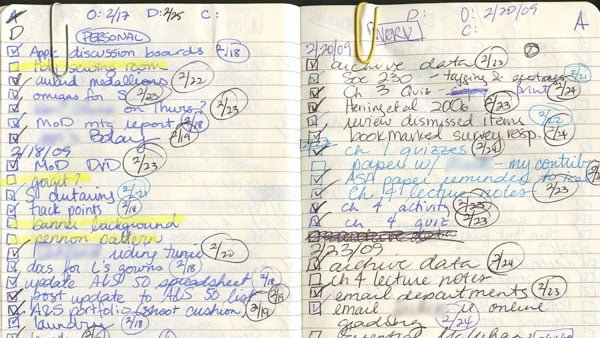 A O: 2/17 D: 2/25 C:
D PERSONAL
Apple discussion boards 2/18
sewing room
award medallions 2/22
omegas for S 2/23
on Thurs? 2/23
MoD mtg report 2/18
Bday 2/19
2/18/09
MoD DVD 2/23
gorgit?
50 dictariums 2/21
track points 2/18
banner background
pennon pattern
riding tunic 2/20
docs for L's gowns 2/18
update A&S 50 spreadsheet 2/18
post update to A&S 50 list 2/19
A&S portfolio (shoot cushion) 2/19
laundry 2/18
D: O: 2/20/09 C: A
WORK
2/20/09
archive data 2/23
Soc 230 - tagging & 2/21
Ch 3 Quiz - print 2/24
Hering et al 2006 2/23
review dismissed items 2/22
bookmarked survey resp. 2/24
ch 1 quizzes 2/24
paper w/ - my contrib
ASA paper reminder to
Ch 4 lecture notes 2/23
ch 4 activity 2/23
ch 4 quiz 2/23
2/23/09
archive data 2/24
ch 4 lecture notes
email departments 2/23
email re online
grading 2/24